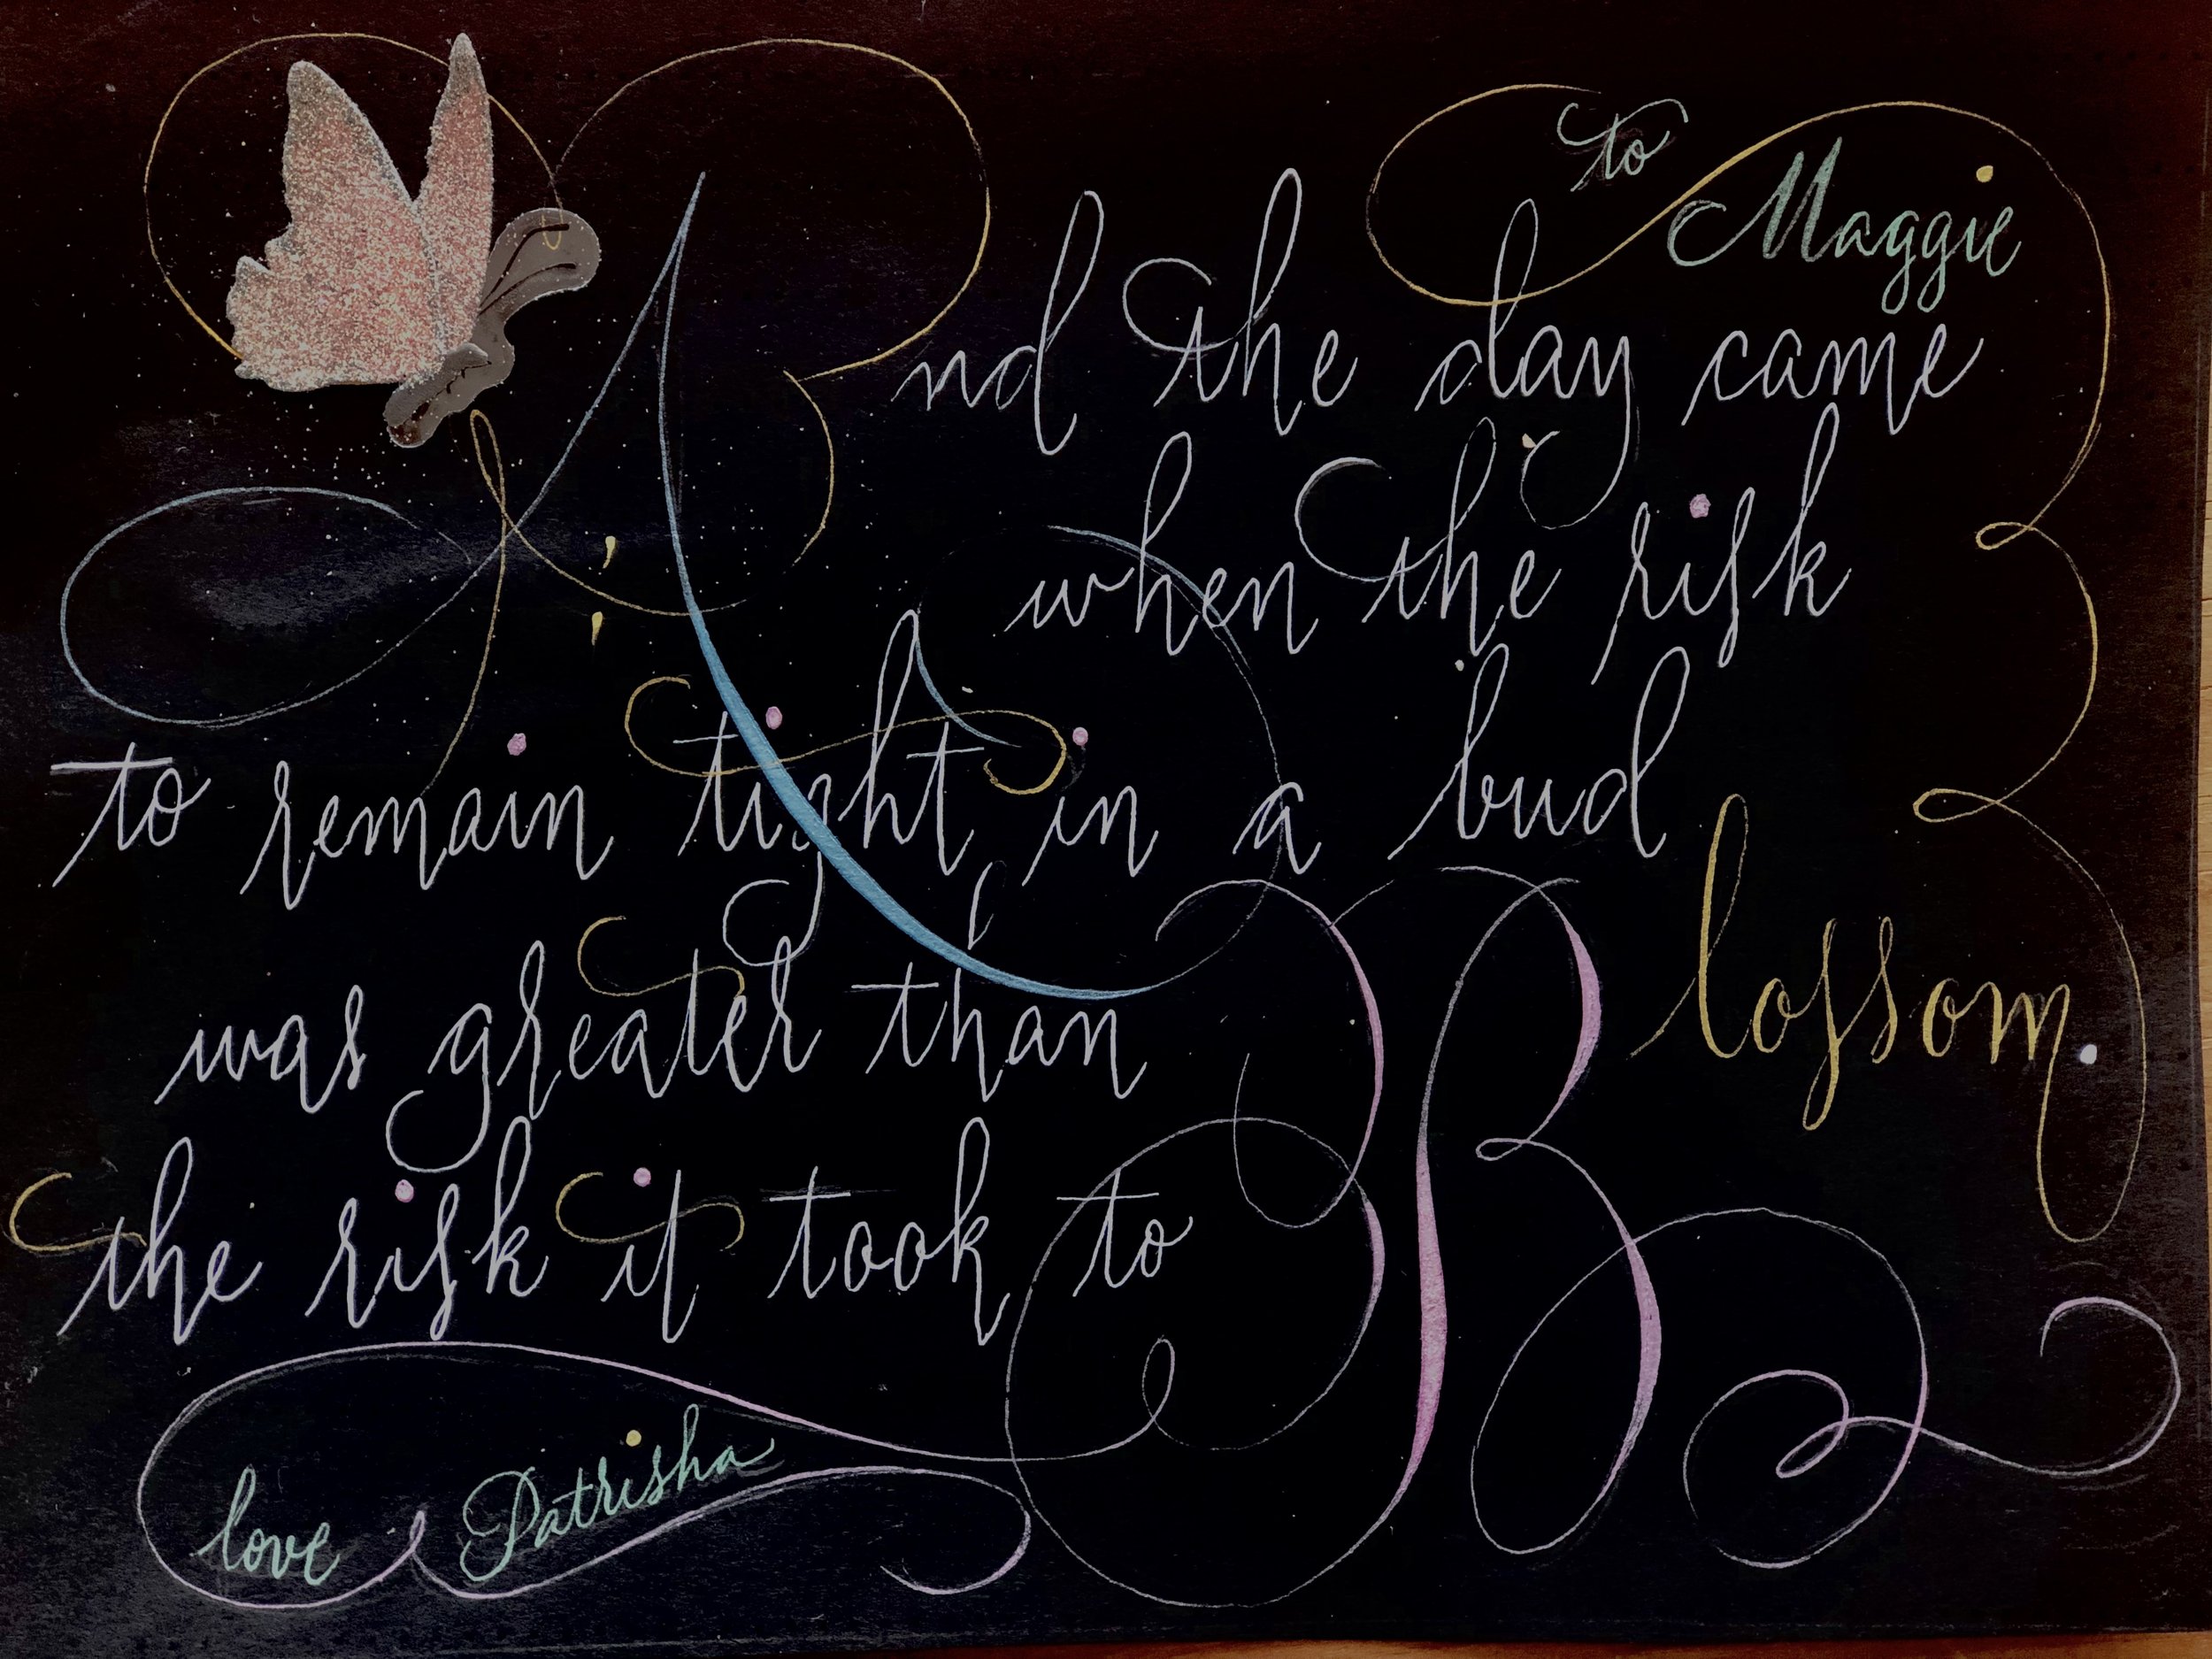 to Maggie
And the day came
when the risk
to remain tight in a bud
was greater than
the risk it took to
Blossom.
love Patrisha